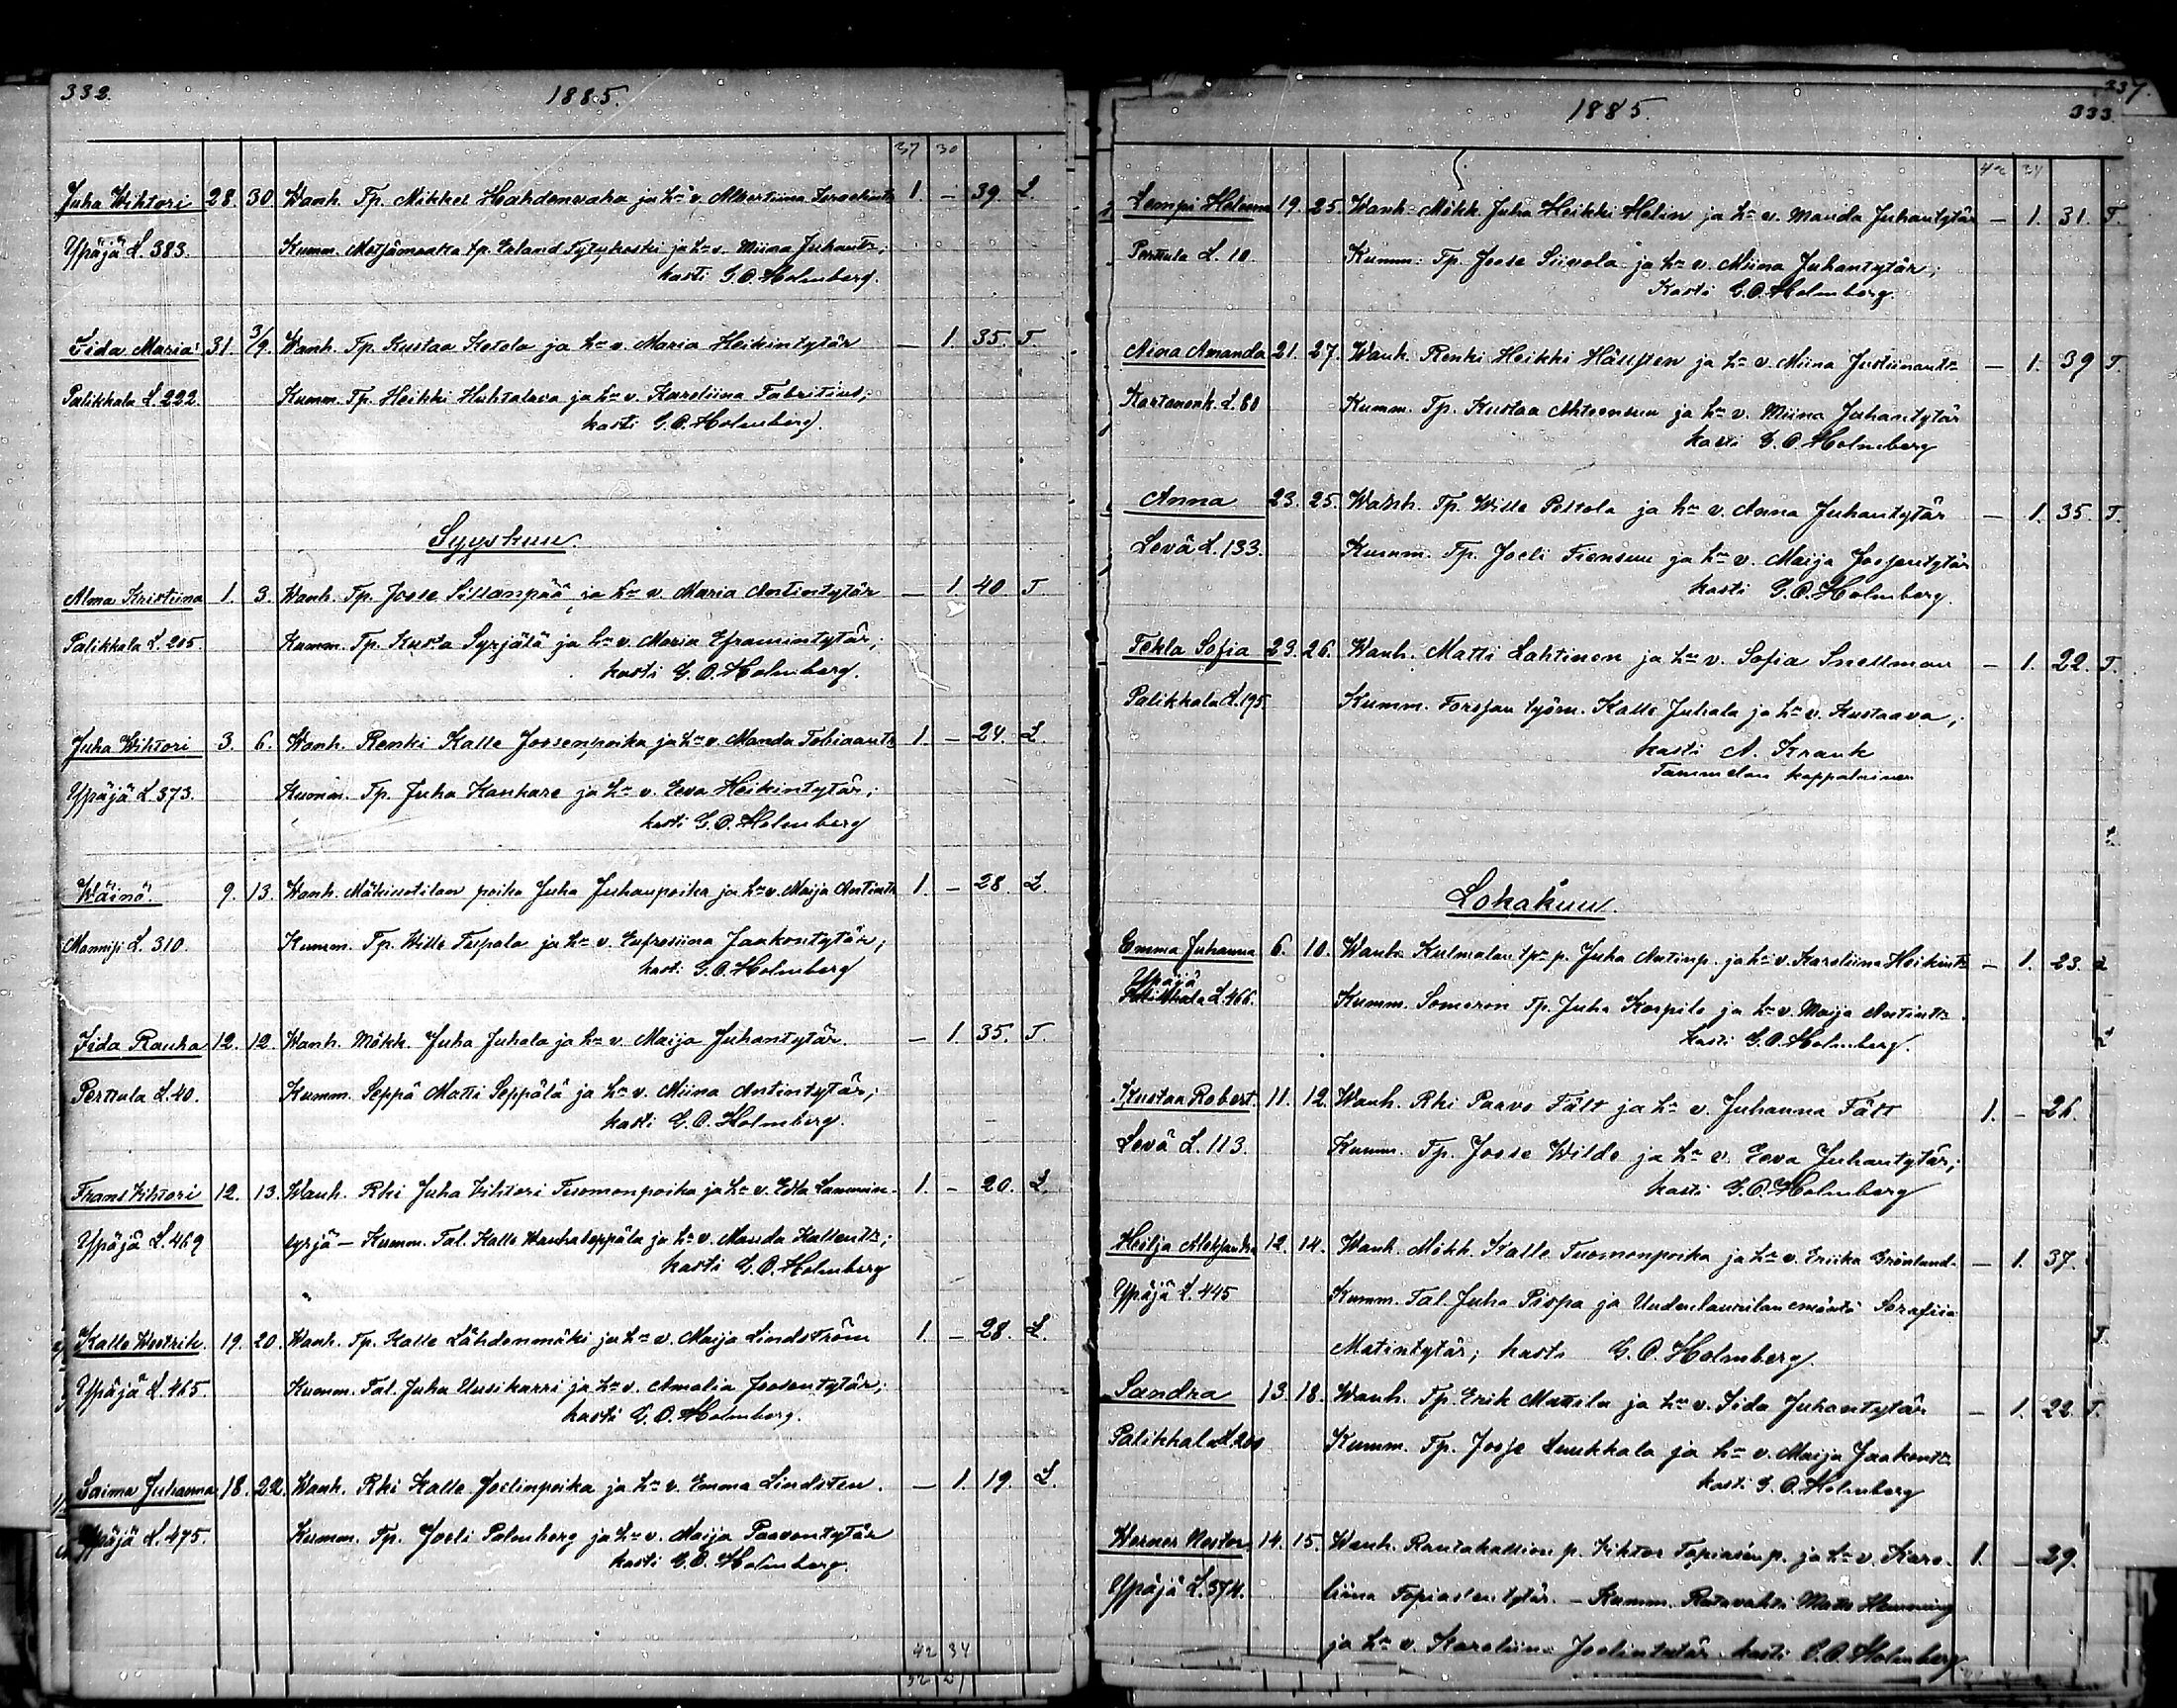 332.
1885.
37 30
Juha Wihtori 28. 30. Wanh. Tp. Mikkel Hahdenvaha ja hra v. Albertiina Israelintr 1. — 39. L.
Ypäjä L. 383. Kumm. Matjämaalta tp. Erland Sytykoski ja hra v. Miina Juhantr;
kasti G. O. Holmberg.
Iida Maria 31. 3/9. Wanh. Tp. Kustaa Ketola ja hra v. Maria Heikintytär — 1. 35. T
Palikkala L. 222. Kumm. Tp. Heikki Huhtalava ja hra v. Karoliina Fabritius;
kasti G. O. Holmberg.
Syyskuu.
Alma Kristiina 1. 3. Wanh. Tp. Joose Sillanpää ja hra v. Maria Antintytär — 1. 40 T
Palikkala L. 205. Kumm. Tp. Kusta Syrjälä ja hra v. Maria Eframintytär;
kasti G. O. Holmberg.
Juha Wihtori 3. 6. Wanh. Renki Kalle Joosenpoika ja hra v. Manda Tobiaantr 1. — 24. L.
Ypäjä L. 373. Kumm. Tp. Juha Kanhare ja hra v. Eeva Heikintytär;
kasti G. O. Holmberg
Wäinö. 9. 13. Wanh. Mäkitilan poika Juha Juhanpoika ja hra v. Maija Antintr 1. — 28. L.
Mannisi L. 310. Kumm. Tp. Wille Tupala ja hra v. Eufrosiina Jaakontytär;
kasti G. O. Holmberg
Iida Rauha 12. 12. Wanh. Mökk. Juha Juhala ja hra v. Maija Juhantytär. — 1. 35. T.
Perttula L. 40. Kumm. Seppä Matti Seppälä ja hra v. Miina Antintytär;
kasti G. O. Holmberg.
Frans Vihtori 12. 13. Wanh. Rki Juha Vihtori Tuomonpoika ja hra v. Edla Lammin- 1. — 20. L.
Ypäjä L. 469 syrjä — Kumm. Tal. Kalle Wanhaseppälä ja hra v. Manda Kallentr;
kasti G. O. Holmberg
Kalle Westrik. 19. 20. Wanh. Tp. Kalle Lähdenmäki ja hra v. Maija Lindström 1. — 28. L.
Ypäjä L. 465. Kumm. Tal. Juha Uusikarri ja hra v. Amalia Joosentytär;
kasti G. O. Holmberg.
Saima Juhanna 18. 22. Wanh. Rki Kalle Joelinpoika ja hra v. Emma Lindsten. — 1. 19. L.
Ypäjä L. 475. Kumm. Tp. Joeli Palmberg ja hra v. Maija Paavontytär
kasti G. O. Holmberg.
42 34
337.
1885.
333
42 34
Lempi Helena 19. 25. Wanh. Mökk. Juha Heikki Helin ja hra v. Manda Juhantytär — 1. 31. T.
Perttula L. 10. Kumm: Tp. Joose Siivola ja hra v. Miina Juhantytär;
Kasti G. O. Holmberg.
Aina Amanda 21. 27. Wanh. Renki Heikki Hällsten ja hra v. Miina Justiinantr — 1. 39 T.
Kartanonk. L. 80 Kumm. Tp. Kustaa Ahtoonsuu ja hra v. Miina Juhantytär
kasti G. O. Holmberg
Anna 23. 25. Wanh. Tp. Wille Peltola ja hra v. Anna Juhantytär — 1. 35. T.
Levä L. 133. Kumm. Tp. Joeli Tiensuu ja hra v. Maija Joosentytär
kasti G. O. Holmberg.
Tekla Sofia 23. 26. Wanh. Matti Lahtinen ja hra v. Sofia Snellman — 1. 22. T.
Palikkala L. 195. Kumm. Forssan työm. Kalle Juhala ja hra v. Kustaava;
kasti A. Krank
Tammelan kappalainen
Lokakuu.
Emma Juhanna 6. 10. Wanh. Kulmalan tpn p. Juha Antinp. ja hra v. Karoliina Heikintr — 1. 23. L
Ypäjä
L. 466. Kumm. Someron Tp. Juha Korpilo ja hra v. Maija Antintr.
Kasti G. O. Holmberg.
Kustaa Robert. 11. 12. Wanh. Rki Paavo Fält ja hra v. Juhanna Fält 1. — 26.
Levä L. 113. Kumm. Tp. Joose Wilde ja hra v. Eeva Juhantytär;
kasti G. O. Holmberg
Hilja Aleksandra 12. 14. Wanh. Mökk. Kalle Tuomonpoika ja hra v. Eriika Grönlund. — 1. 37.
Ypäjä L. 445 Kumm. Tal. Juha Pispa ja Uudenlaurilan emäntä Serafiia
Matintytär; kasti G. O. Holmberg. T.
Sandra 13. 18. Wanh. Tp. Erik Mattila ja hra v. Iida Juhantytär — 1. 22. T.
Palikkala L. 200 Kumm. Tp. Joose Luukkala ja hra v. Maija Jaakontr
kasti G. O. Holmberg
Werner Nestor. 14. 15. Wanh. Rautakallion p. Vihtor Topiasenp. ja hra v. Karo- 1. — 29.
Ypäjä L. 374. liina Topiaslentytär. — Kumm. Ratavahti Matts Henning
ja hra v. Karoliina Joelintytär kasti G. O. Holmberg